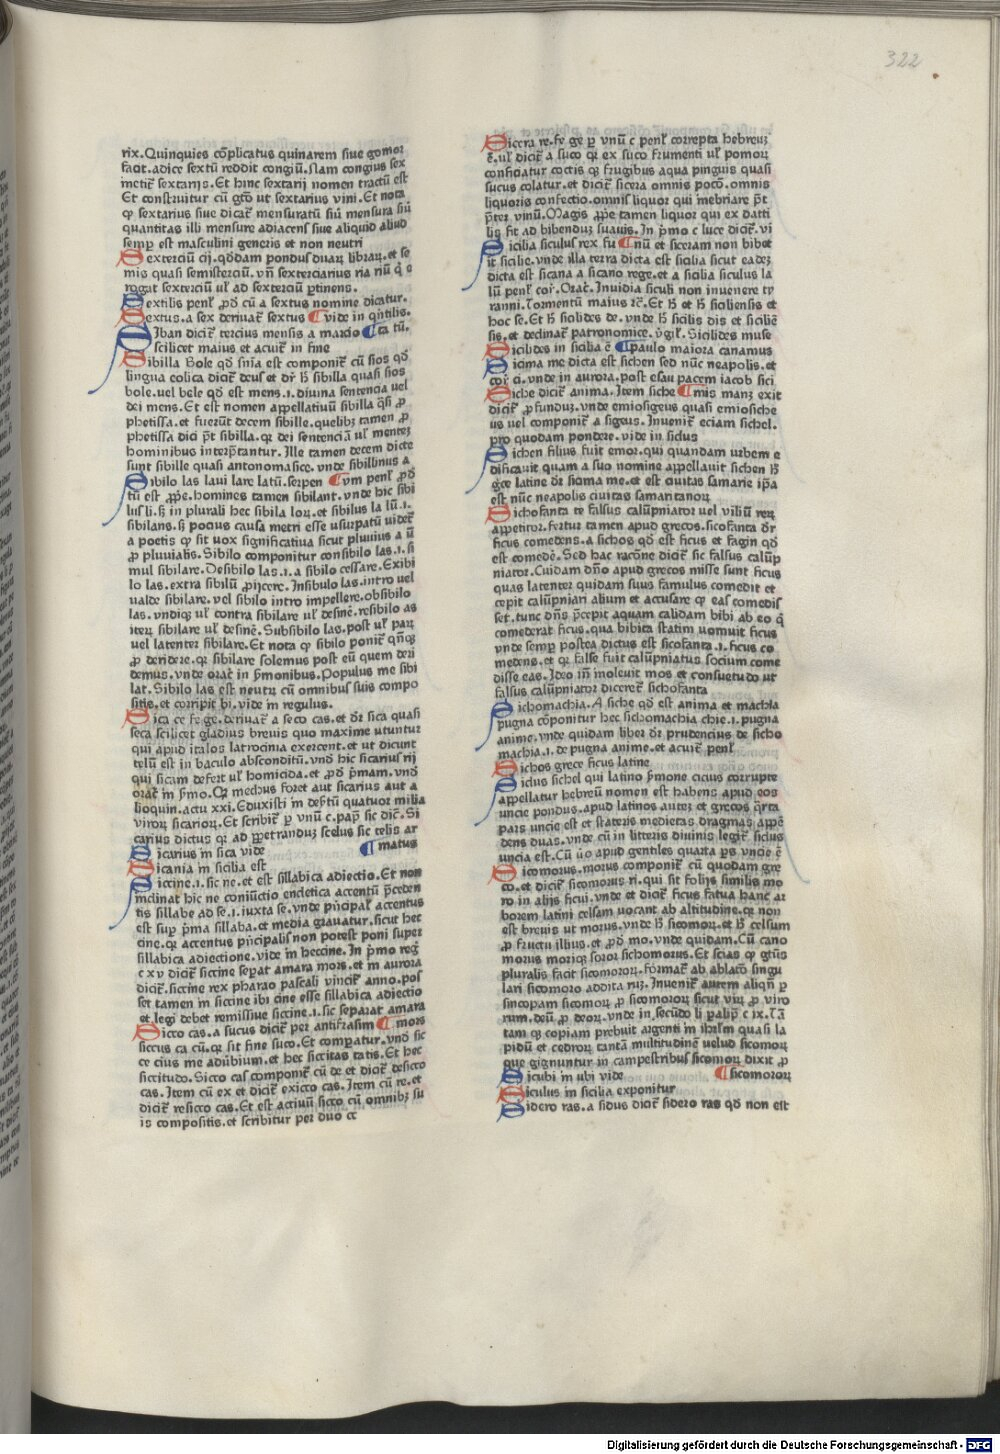 322
rix. Quinquies cōplicatus quinarem siue gomor
facit. adice sextū reddit congiū. Nam congius sex
metit̄ sextarijs. Et hinc sextarij nomen tractū est
Et construitur cū gt̄o ut sextarius vini. Et nota
ꝙ sextarius siue dicat̄ mensuratū siū mensura siū
quantitas illi mensure adiacens siue aliquid aliud
semꝑ est masculini generis et non neutri
Sexterciū cij. qd̄dam pondus duarꝝ librarꝝ. et se
mis quasi semisterciū. vn̄ sexterciarius ria riū q̄ e
rogat sexterciū ul̄ ad sexterciū ꝑtinens.
Sextilis penl̄ ꝓd̄ cū a sextus nomine dicatur.
Sextus. a sex deriuat̄ sextus ¶ vide in qn̄tilis.
Siban dicit̄ tercius mensis a marcio ¶ ta tū.
scilicet maius et acuit̄ in fine
Sibilla Bole qd̄ sn̄ia est componit̄ cū sios qd̄
lingua colica dicit̄ deus et dr̄ h̄ sibilla quasi sios
bole. uel bele qd̄ est mens .i. diuina sentencia uel
dei mens. Et est nomen appellatiuū sibilla q̄si ꝓ
phetissa. et fuerūt decem sibille. quelibꝫ tamen ꝓ
phetissa dici pt̄ sibilla. qꝛ dei sentenciā ul̄ menteꝫ
hominibus interp̄tantur. Ille tamen decem dicte
sunt sibille quasi antonomasice. vnde sibillinus a
Sibilo las laui lare latū. serpen ¶ vm penl̄ ꝓd̄
tū est ꝓp̄e. homines tamen sibilant. vnde hic sibi
lus li. sꝫ in plurali hec sibila loꝝ. et sibilus la lū .i.
sibilans. sꝫ pocius causa metri esse usurpatū uidet̄
a poetis ꝙ sit uox significatiua sicut pluuius a ū
ꝓ pluuialis. Sibilo componitur consibilo las .i. si
mul sibilare. Desibilo las .i. a sibilo cessare. Exibi
lo las. extra sibilū ꝓijcere. Insibulo las. intro uel
ualde sibilare. vel sibilo intro impellere. obsibilo
las. vndiqꝫ ul̄ contra sibilare ul̄ desinē. resibilo as
iterꝫ sibilare ul̄ desinē. Subsibilo las. post ul̄ parꝫ
uel latenter sibilare. Et nota ꝙ sibilo ponit̄ qn̄qꝫ
ꝓ deridere. qꝛ sibilare solemus post eū quem deri
demus. vnde orat̄ in ẜmonibus. Populus me sibi
lat. Sibilo las est neutꝝ cū omnibus suis compo
sitis. et corripit bi. vide in regulus.
Sica ce fe. ge. deriuat̄ a seco cas. et dr̄ sica quasi
seca scilicet gladius breuis quo maxime utuntur
qui apud italos latrocinia exercent. et ut dicunt
telū est in baculo absconditū. vnd̄ hic sicarius rij
qui sicam defert ul̄ homicida. et ꝓd̄ p̄mam. vnd̄
orat̄ in ẜmo. Qꝛ medius foret aut sicarius aut a
lioquin. actu xxi. Eduxisti in deẜtū quatuor milia
viroꝝ sicarioꝝ. Et scribit̄ ꝑ vnū c. pap̄ sic dic̄. Si
carius dictus qꝛ ad ꝑpetranduꝫ scelus sic telis ar
Sicarius in sica vide ¶ matus
Sicania in sicilia est
Siccine .i. sic ne. et est sillabica adiectio. Et non
inclinat hic ne coniūctio encletica accentū p̄ceden
tis sillabe ad se .i. iuxta se. vnde pn̄cipal̄ accentus
est suꝑ p̄ma sillaba. et media grauatur. sicut hec
cine. qꝛ accentus pn̄cipalis non potest poni super
sillabica adiectione. vide in heccine. In p̄mo reḡ
c xv dicit̄ siccine separat amara mors. et in aurora
dicit̄. siccine rex pharao pascali vincit̄ anno. pos
set tamen in siccine ibi cine esse sillabica adiectio
et legi debet remissiue siccine .i. sic separat amara
Sicco cas. a sucus dicit̄ per antifrasim ¶ mors
siccus ca cū. qꝛ sit sine suco. Et compatur. vnd̄ sic
ce cius me adūbium. et hec siccitas tatis. Et hec
siccitudo. Sicco cas componit̄ cū de et dicit̄ desicco
cas. Item cū ex et dicit̄ exicco cas. Item cū re. et
dicit̄ resicco cas. Et est actiuū sicco cū omnibꝫ su
is compositis. et scribitur per duo cc
Sicera re. fe ge ꝑ vnū c penl̄ correpta hebreuꝫ
ē. ul̄ dicit̄ a suco qꝛ ex suco frumenti ul̄ pomoꝝ
conficiatur coctis qꝫ frugibus aqua pinguis quasi
sucus colatur. et dicit̄ sicera omnis pocō. omnis
liquoris confectio. omnis liquor qui inebriare pt̄
p̄ter vinū. Magis ꝓp̄e tamen liquor qui ex dacti
lis fit ad bibenduꝫ suauis. In p̄mo c luce dicit̄. vi
Sicilia siculus rex fu ¶ nū et siceram non bibet
it sicilie. vnde illa terra dicta est sicilia sicut eadeꝫ
dicta est sicana a sicano rege. et a sicilia siculus la
lū penl̄ cor̄. Orac̄. Inuidia siculi non inuenere ty
ranni. Tormentū maius ꝛc̄. Et h̄ et h̄ siciliensis et
hoc se. Et h̄ sicilides de. vnde h̄ sicilis dis et siciliē
sis. et declinat̄ patronomice. v̄gil̄. Sicilides muse
Sicilides in sicilia ē ¶ paulo maiora canamus
Sicima me dicta est sichen sed nūc neapolis. et
cor̄ ci. vnde in aurora. post esau pacem iacob sici
Siche dicit̄ anima. Item siche ¶ mis manꝫ exit
dicit̄ ꝓfunduꝫ. vnde emiosigeus quasi emiosiche
us uel componit̄ a sigeus. Inuenit̄ eciam sichel.
pro quodam pondere. vide in siclus
Sichen filius fuit emor. qui quandam urbem e
dificauit quam a suo nomine appellauit sichen h̄
gr̄ce latine dr̄ sicima me. et est ciuitas samarie ip̄a
est nūc neapolis ciuitas samaritanoꝝ
Sichofanta te falsus calūpniator uel viliū reꝝ
appetitor. fertur tamen apud grecos. sicofanta dr̄
ficus comedens. a sichos qd̄ est ficus et fagin qd̄
est comedē. Sed hac racōne dicit̄ sic falsus calūp
niator. Cuidam dn̄o apud grecos misse sunt ficus
quas latenter quidam suus famulus comedit et
cepit calūpnian alium et accusare ꝙ eas comedis
set. tunc dn̄s p̄cepit aquam calidam bibi ab eo q̄
comederat ficus. qua bibita statim uomuit ficus
vnde semꝑ postea dictus est sicofanta .i. ficus co
medens. et qꝛ false fuit calūpniatus socium come
disse eas. Ideo in̄ inoleuit mos et consuetudo ut
falsus calūpniator diceret̄ sichofanta
Sichomachia. A siche qd̄ est anima et machia
pugna cōponitur hec sichomachia chie .i. pugna
anime. vnde quidam liber dr̄ prudencius de sicho
machia .i. de pugna anime. et acuit̄ penl̄
Sichos grece ficus latine
Siclus sichel qui latino ẜmone cicius corrupte
appellatur hebreū nomen est habens apud eos
uncie pondus. apud latinos auteꝫ et grecos q̄rta
pars uncie est et stateris medietas dragmas appē
dens duas. vnde cū in litteris diuinis legit̄ siclus
uncia est. Cū uō apud gentiles quarta ꝑs vncie ē
Sicomorus. morus componit̄ cū quodam gre
co. et dicit̄ sicomorus ri. qui sit folijs similis mo
ro in alijs ficui. vnde et dicit̄ ficus fatua hanc ar
borem latini celsam uocant ab altitudine. qꝛ non
est breuis ut morus. vnde h̄ sicomoꝝ. et h̄ celsum
ꝓ fructu illius. et ꝓd̄ mo. vnde quidam. Cū cano
morus moriqꝫ soror sichomorus. Et scias ꝙ gt̄us
pluralis facit sicomoroꝝ. format̄ ab ablatō singu
lari sicomoro addita rum. Inuenit̄ autem aliqn̄ ꝑ
sincopam sicomoꝝ ꝓ sicomoroꝝ sicut viꝝ ꝓ viro
rum. deū ꝓ deoꝝ. vnde in secūdo li palip̄ c ix. Tā
tam qꝫ copiam prebuit argenti in ihrl̄m quasi la
pidū et cedroꝝ tantā multitudinē uelud sicomoꝝ
que gignuntur in campestribus sicomoꝝ dixit ꝓ
Sicubi in ubi vide ¶ sicomoroꝝ
Siculus in sicilia exponitur
Sidero ras. a sidus dicit̄ sidero ras qd̄ non est
Digitalisierung gefördert durch die Deutsche Forschungsgemeinschaft - DFG